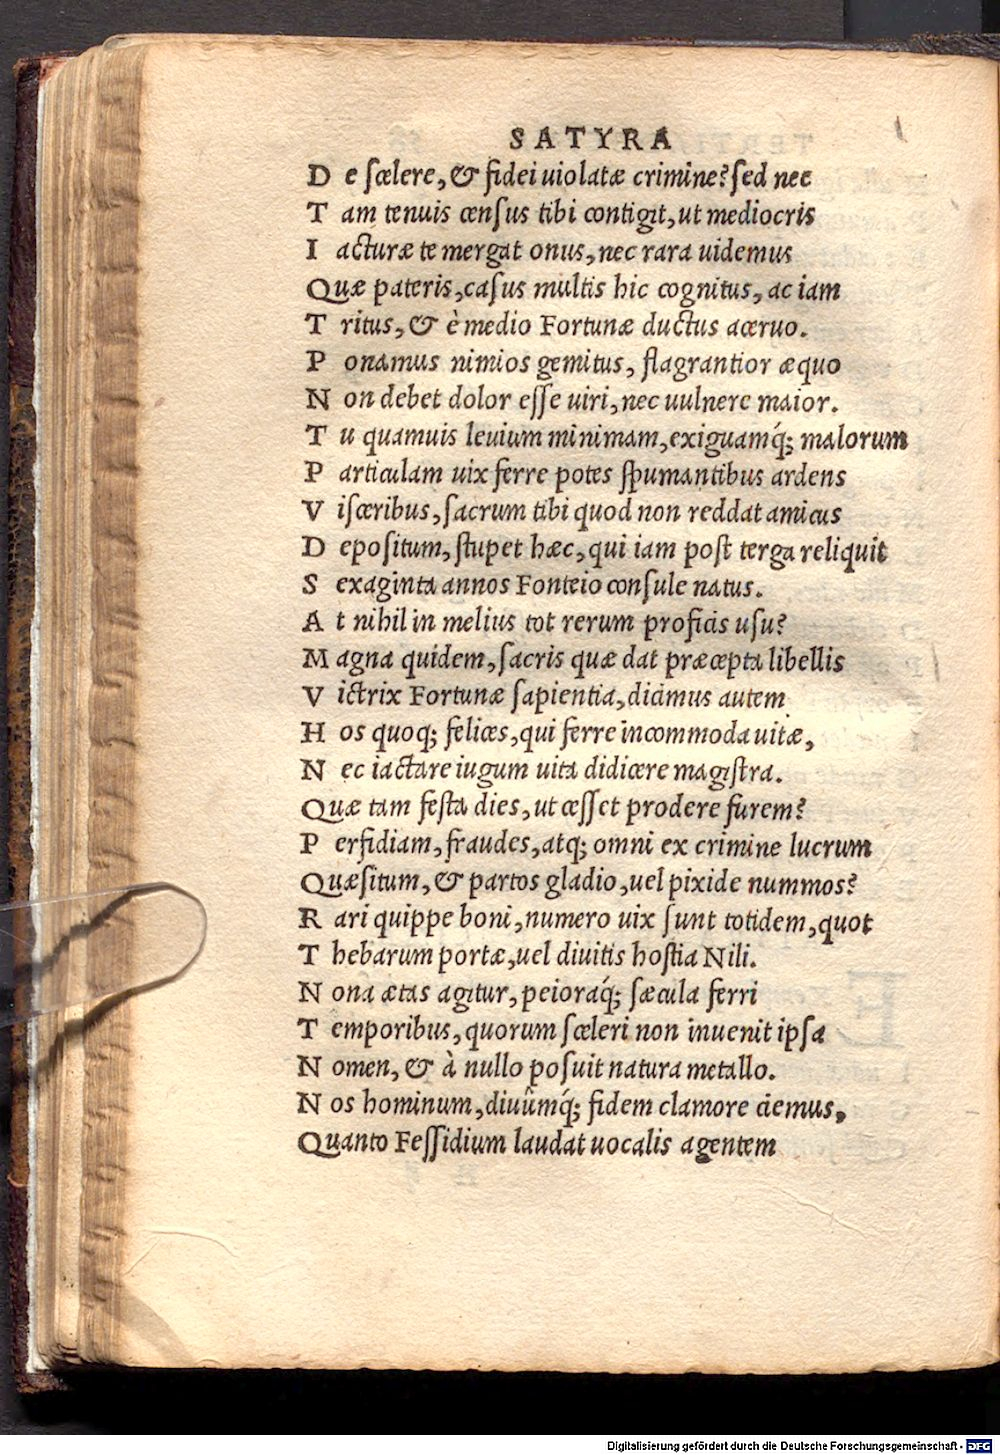 SATYRA
De scelere, & fidei uiolatæ crimine? sed nec
Tam tenuis census tibi contigit, ut mediocris
Iacturæ te mergat onus, nec rara uidemus
Quæ pateris, casus multis hic cognitus, ac iam
Tritus, & è medio Fortunæ ductus aceruo.
Ponamus nimios gemitus, flagrantior æquo
Non debet dolor esse uiri, nec uulnere maior.
Tu quamuis leuium minimam, exiguamq́; malorum
Particulam uix ferre potes spumantibus ardens
Visceribus, sacrum tibi quod non reddat amicus
Depositum, stupet hæc, qui iam post terga reliquit
Sexaginta annos Fonteio consule natus.
At nihil in melius tot rerum proficis usu?
Magna quidem, sacris quæ dat præcepta libellis
Victrix Fortunæ sapientia, dicimus autem
Hos quoq; felices, qui ferre incommoda uitæ,
Nec iactare iugum uita didicere magistra.
Quæ tam festa dies, ut cesset prodere furem?
Perfidiam, fraudes, atq; omni ex crimine lucrum
Quæsitum, & partos gladio, uel pixide nummos?
Rari quippe boni, numero uix sunt totidem, quot
Thebarum portæ, uel diuitis hostia Nili.
Nona ætas agitur, peioraq́; sæcula ferri
Temporibus, quorum sceleri non inuenit ipsa
Nomen, & à nullo posuit natura metallo.
Nos hominum, diuûmq́; fidem clamore ciemus,
Quanto Fessidium laudat uocalis agentem
Digitalisierung gefördert durch die Deutsche Forschungsgemeinschaft - DFG